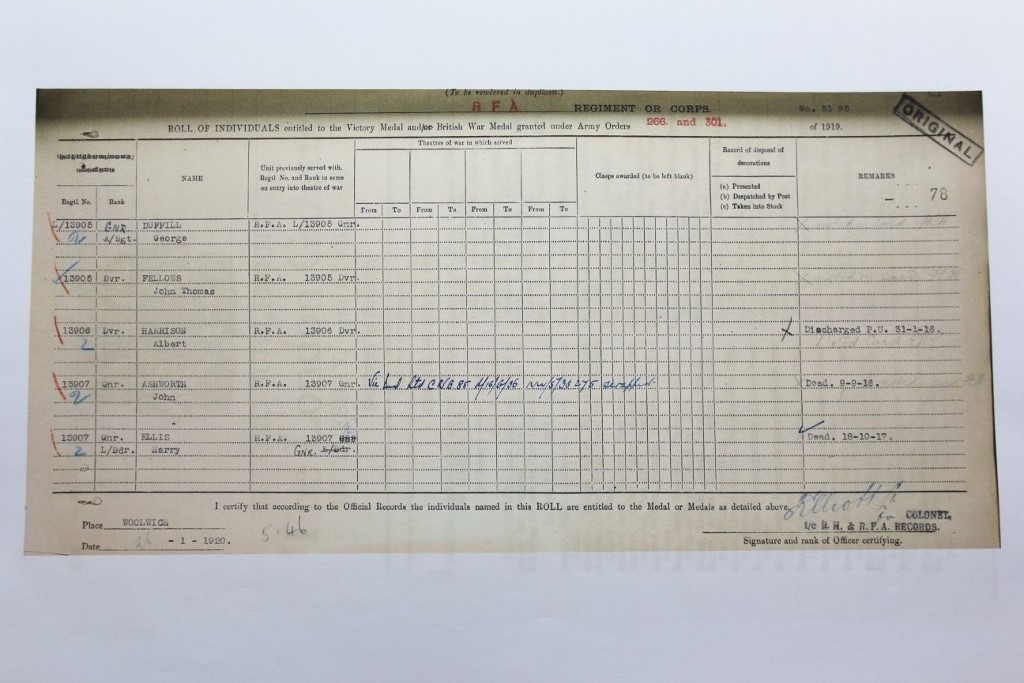 (To be rendered in duplicate.)
R F A REGIMENT OR CORPS. No. 51 95
ROLL OF INDIVIDUALS entitled to the Victory Medal and/or British War Medal granted under Army Orders 266. and 301. of 1919.
ORIGINAL
Theatres of war in which served
Regtl. No. Rank
NAME
Unit previously served with.
Regtl. No. and Rank in same
on entry into theatre of war
From To From To From To From To
Clasps awarded (to be left blank)
Record of disposal of
decorations
(a) Presented
(b) Despatched by Post
(c) Taken into Stock
REMARKS
- 78
L/13905 GNR DUFFILL R.F.A. L/13905 Gnr.
2 A/Sgt. George
13905 Dvr. FELLOWS R.F.A. 13905 Dvr.
John Thomas
13906 Dvr. HARRISON R.F.A. 13906 Dvr. X Discharged P.U. 31-1-16.
2 Albert
13907 Gnr. ASHWORTH R.F.A. 13907 Gnr. Vic Dead. 9-9-16.
2 John
13907 Gnr. ELLIS R.F.A. 13907 Gnr Dead. 18-10-17.
2 L/Bdr. Harry GNR. L/Bdr.
I certify that according to the Official Records the individuals named in this ROLL are entitled to the Medal or Medals as detailed above.
Place WOOLWICH
Date - 1 - 1920.
5.46
COLONEL,
I/c R. H. & R.F.A. RECORDS.
Signature and rank of Officer certifying.